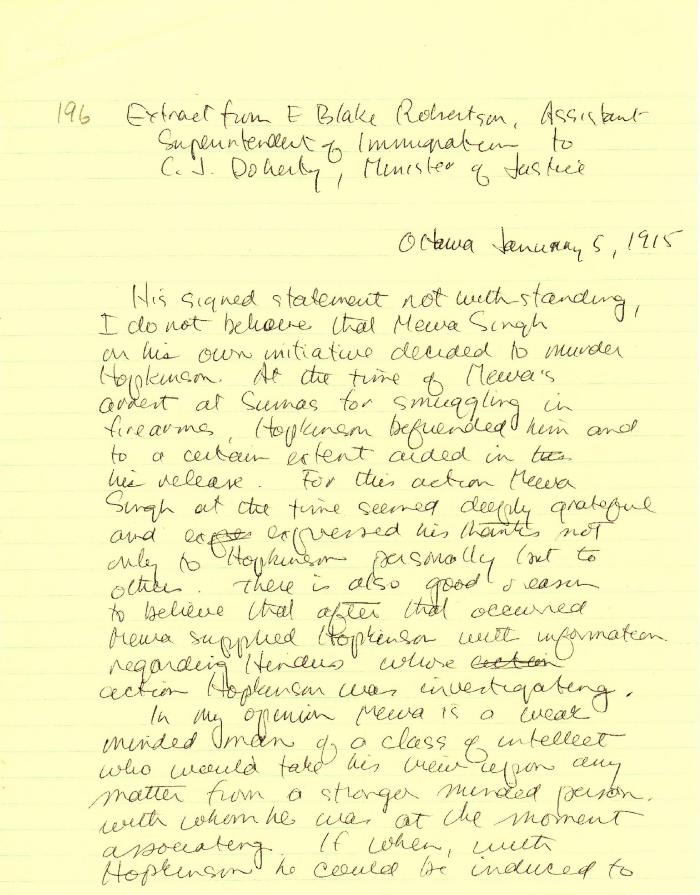 196 Extract from E Blake Robertson, Assistant
Superintendent of Immigration to
C. J. Doherty, Minister of Justice
Ottawa January 5, 1915
His signed statement not with-standing,
I do not believe that Mewa Singh
on his own initiative decided to murder
Hopkinson. At the time of Mewa's
arrest at Sumas for smuggling in
firearms, Hopkinson befriended him and
to a certain extent aided in
his release. For this action Mewa
Singh at the time seemed deeply grateful
and expressed his thanks not
only to Hopkinson personally but to
others. There is also good reason
to believe that after that occurred
Mewa supplied Hopkinson with information
regarding Hindus whose action
action Hopkinson was investigating.
In my opinion Mewa is a weak
minded man of a class of intellect
who would take his view upon any
matter from a stronger minded person.
with whom he was at the moment
associating. If when, with
Hopkinson he could be induced to